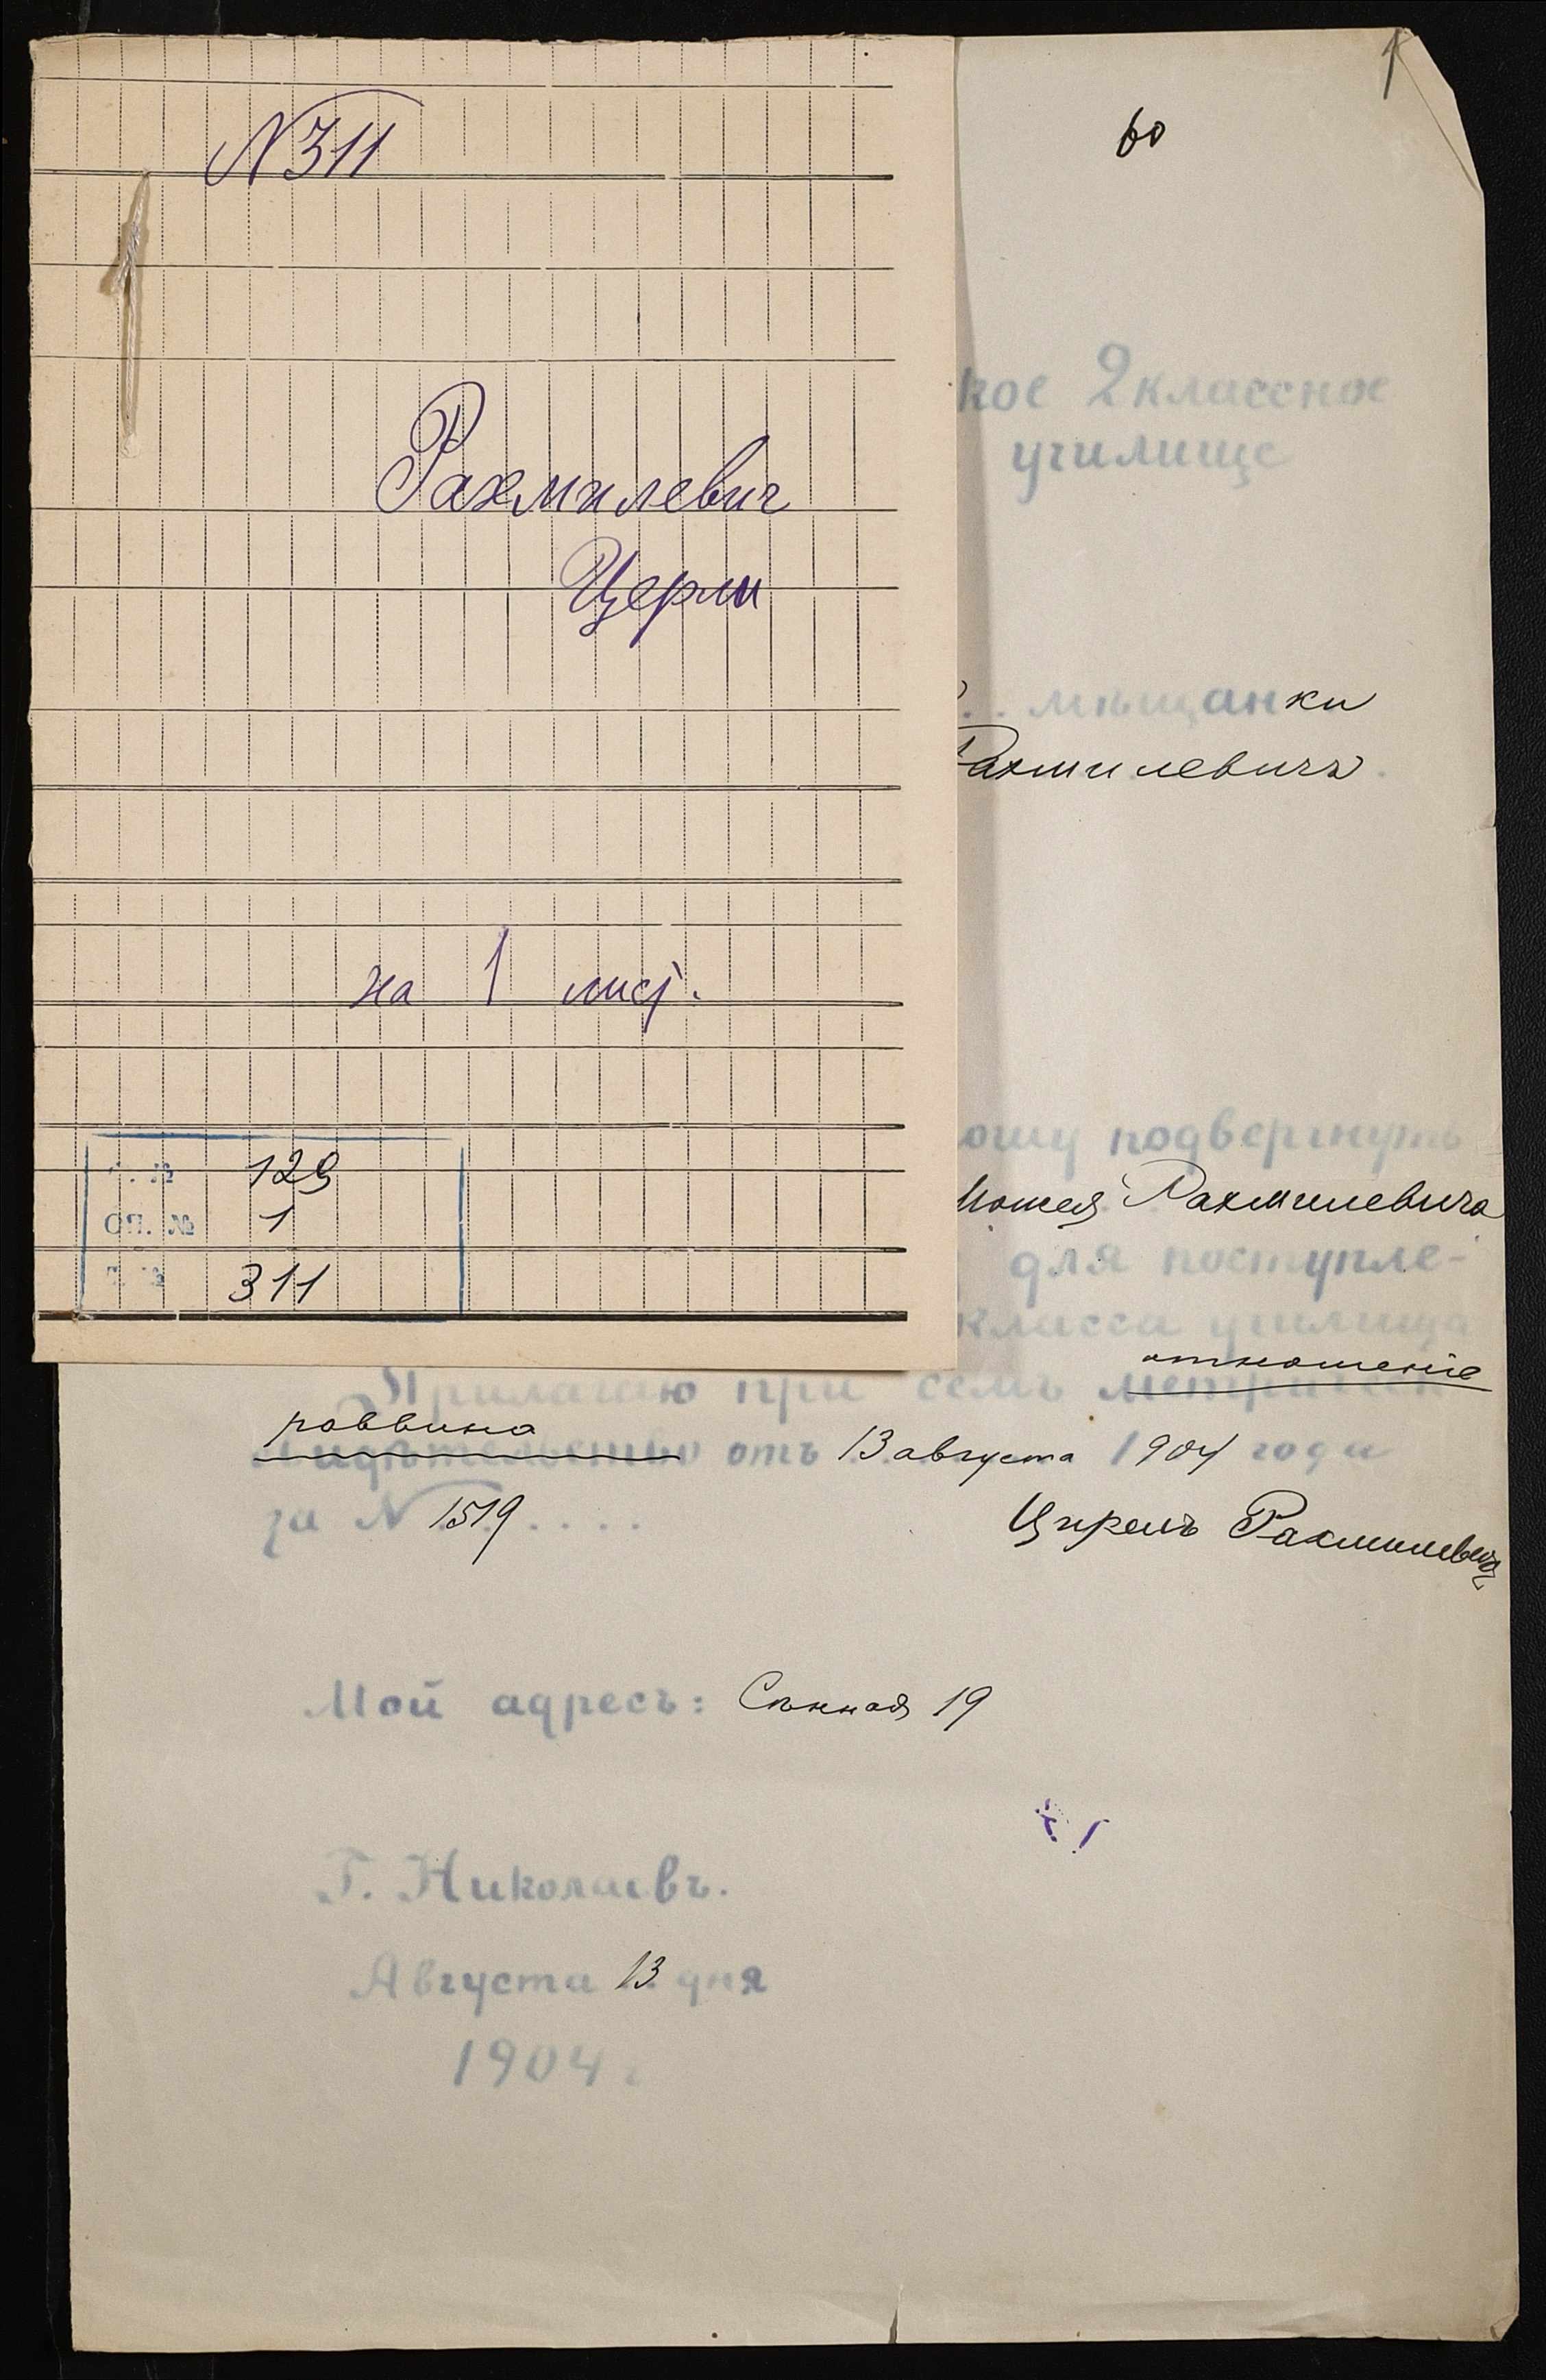 N 311
Рахмилевич
Церли
на 1 лист.
129
ОП. № 1
311
60
кое 2 классное
училище
мѣщанки
Рахмилевичъ
ошу подвергнуть
Рахмилевича
для поступле-
класса училища
отношеніе
Прилагаю при семъ метрическ
раввина
свидѣтельство отъ 13 августа 1904 года
за N 1519
Цирель Рахмилевичъ
Мой адресъ: Сѣнная 19
Г. Николаевъ.
Августа 13 дня
1904 г